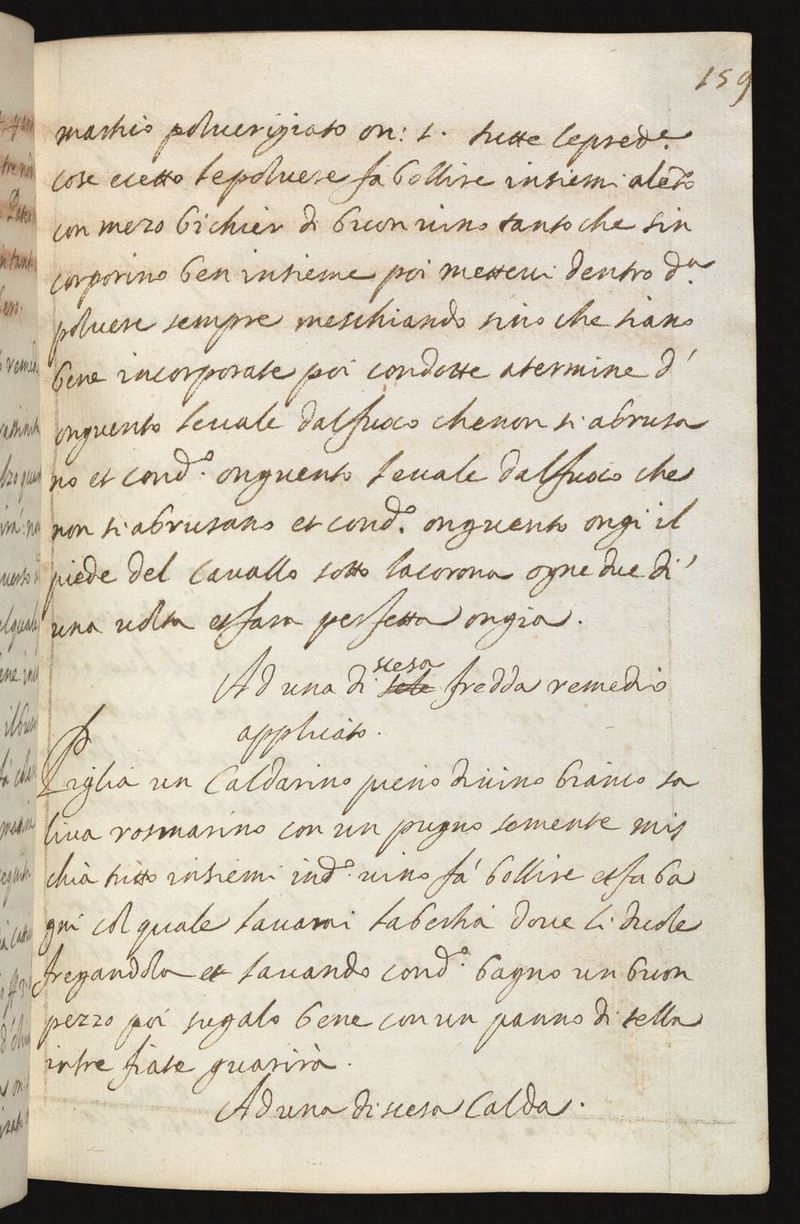 159
maschio poluerigiato on: 1. tutte le pred.e
cose ecetto le poluere fa bollire insiemi a lento
con mezo bichier di buon uino tanto che sin
corporino ben insieme poi metterui dentro d.a
poluere sempre meschiando sino che siano
bene incorporate poi condotte a termine d'
onguento leuale dal fuoco che non si abrusa
no et con d.o onguento leuale dal fuoco che
non si abrusano et con d.o onguento ongi il
piede del cauallo sotto la corona ogne due di
una uolta et fara perfetta ongia.
Ad una di scesa sele fredda remedio
applicato.
Piglia un Caldarino pieno di uino bianco sa
liua rosmarino con un pugno semente mis
chia tutto insiemi in d.o uino fa bollire et fa ba
gni col quale lauarai la bestia doue li duole
fregandola et lauando con d.o bagno un buon
pezzo poi sugalo bene con un panno di tella
in tre fiate guarirà.
Ad una discesa Calda.